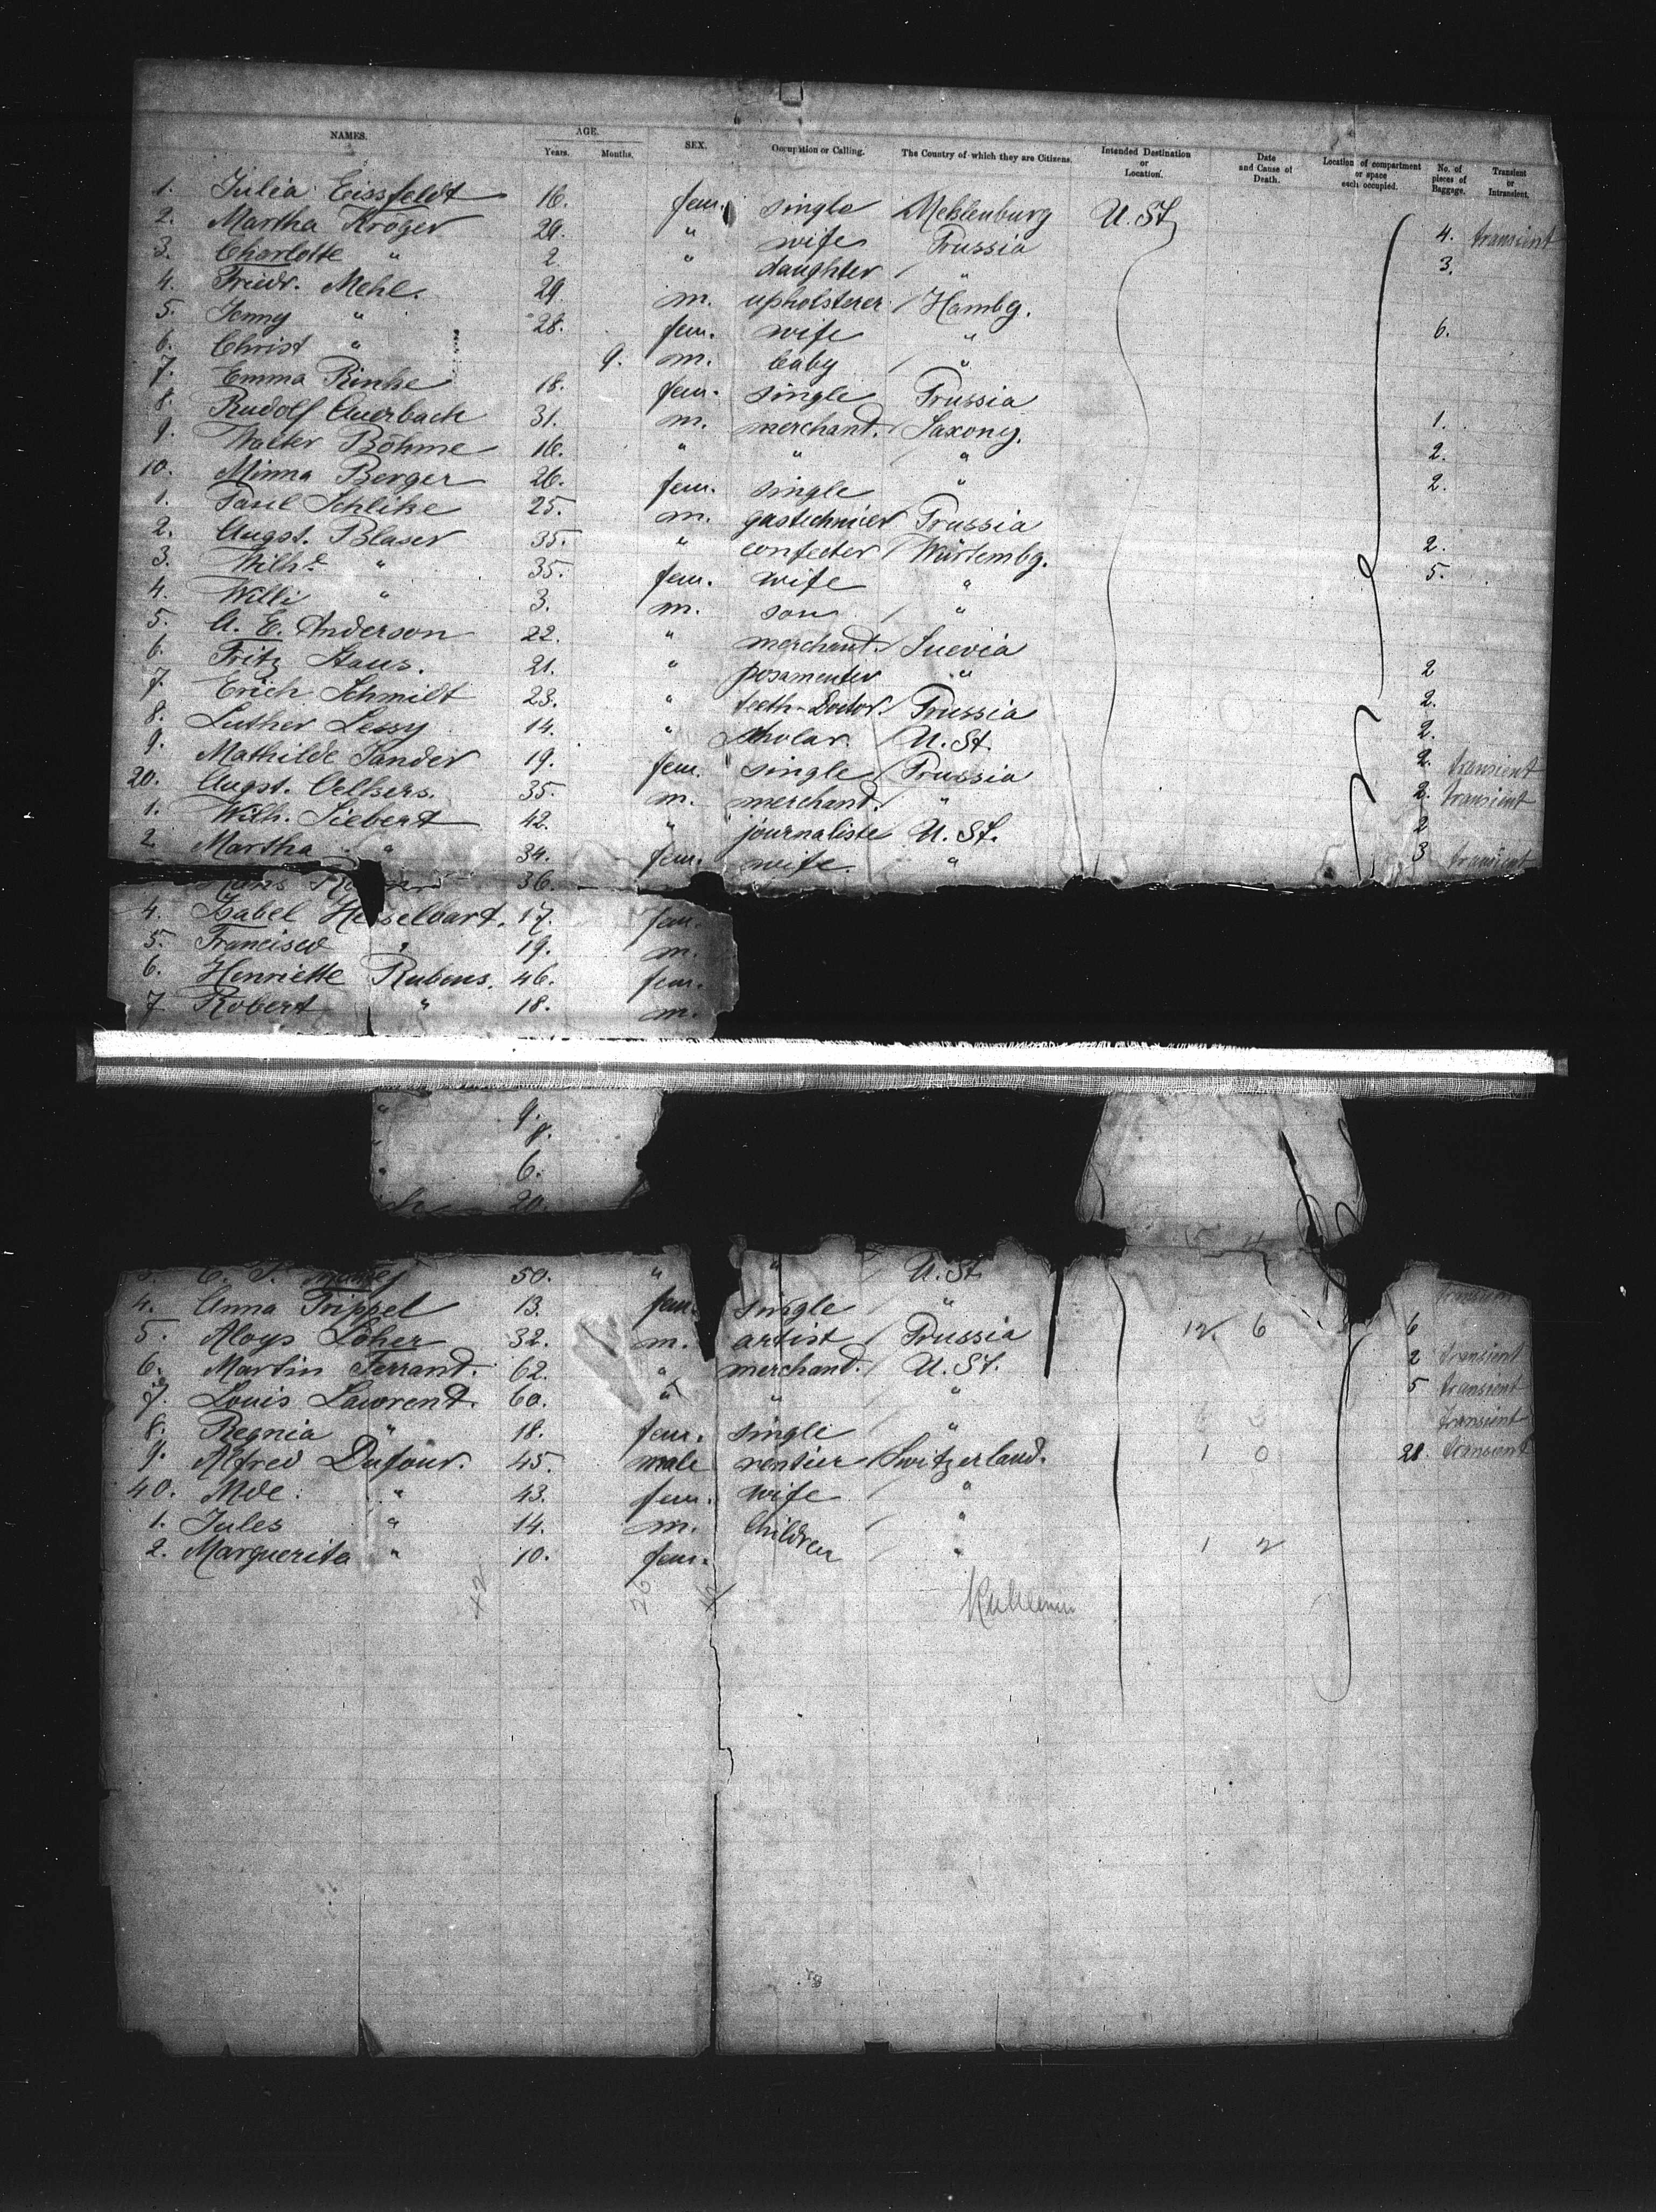 NAMES. AGE. Years. Months. SEX. Occupation or Calling. The Country of which they are Citizens. Intended Destination or Location. Date and Cause of Death. Location of compartment or space each occupied. No. of pieces of Baggage. Transient or Intransient.
1. Julia Eissfeldt 16. fem. single Meklenburg U. St. 4. transient
2. Martha Kröger 29. " wife Prussia 3.
3. Charlotte " 2 " daughter "
4. Friedr. Mehl. 29. m. upholsterer Hambg. 6.
5. Jenny " 28. fem. wife "
6. Christ " 9. m. baby "
7. Emma Rinke 18. fem. single Prussia 1.
8. Rudolf Auerbach 31. m. merchand. Saxony. 2.
9. Walter Böhme 16. " " " 2.
10. Minna Berger 26. fem. single "
1. Paul Schlike 25. m. gastechnicer Prussia 2.
2. Augst. Blaser 35. " confecter Würtembg. 5.
3. Wilhe " 35. fem. wife "
4. Willi " 3. m. son "
5. A. E. Anderson 22. " merchand. Suevia 2
6. Fritz Staus. 21. " posamenter " 2.
7. Erich Schmidt 23. " teeth-Doctor. Prussia 2.
8. Luther Lessy 14. " scholar. U. St. 2. transient
9. Mathilde Sander 19. fem. single Prussia 2. transient
20. Augst. Oelkers. 35. m. merchand. " 2
1. Wilh. Siebert 42. " journaliste U. St. 3 transient
2. Martha " 34. fem. wife "
Hans 36.
4. Isabel Hesselbart. 17. fem.
5. Francisco " 19. m.
6. Henriette Rubens. 46. fem.
7 Robert " 18. m.
" 9.
6.
20.
3. C. 50. " " U. St.
4. Anna Trippel 13. fem. single " 6
5. Aloys Loher 32. m. artist Prussia 12 6 2 transient
6. Martin Ferrand. 62. " merchand. U. St. 5 transient
7. Louis Lawrend. 60. " " " transient
8. Regnia " 18. fem. single "
9. Alfred Dufour. 45. male rentier Switzerland. 1 0 28 transient
40. Mde. " 43. fem. wife "
1. Jules " 14. m. Children "
2. Marguerita " 10. fem. " 1 2
42